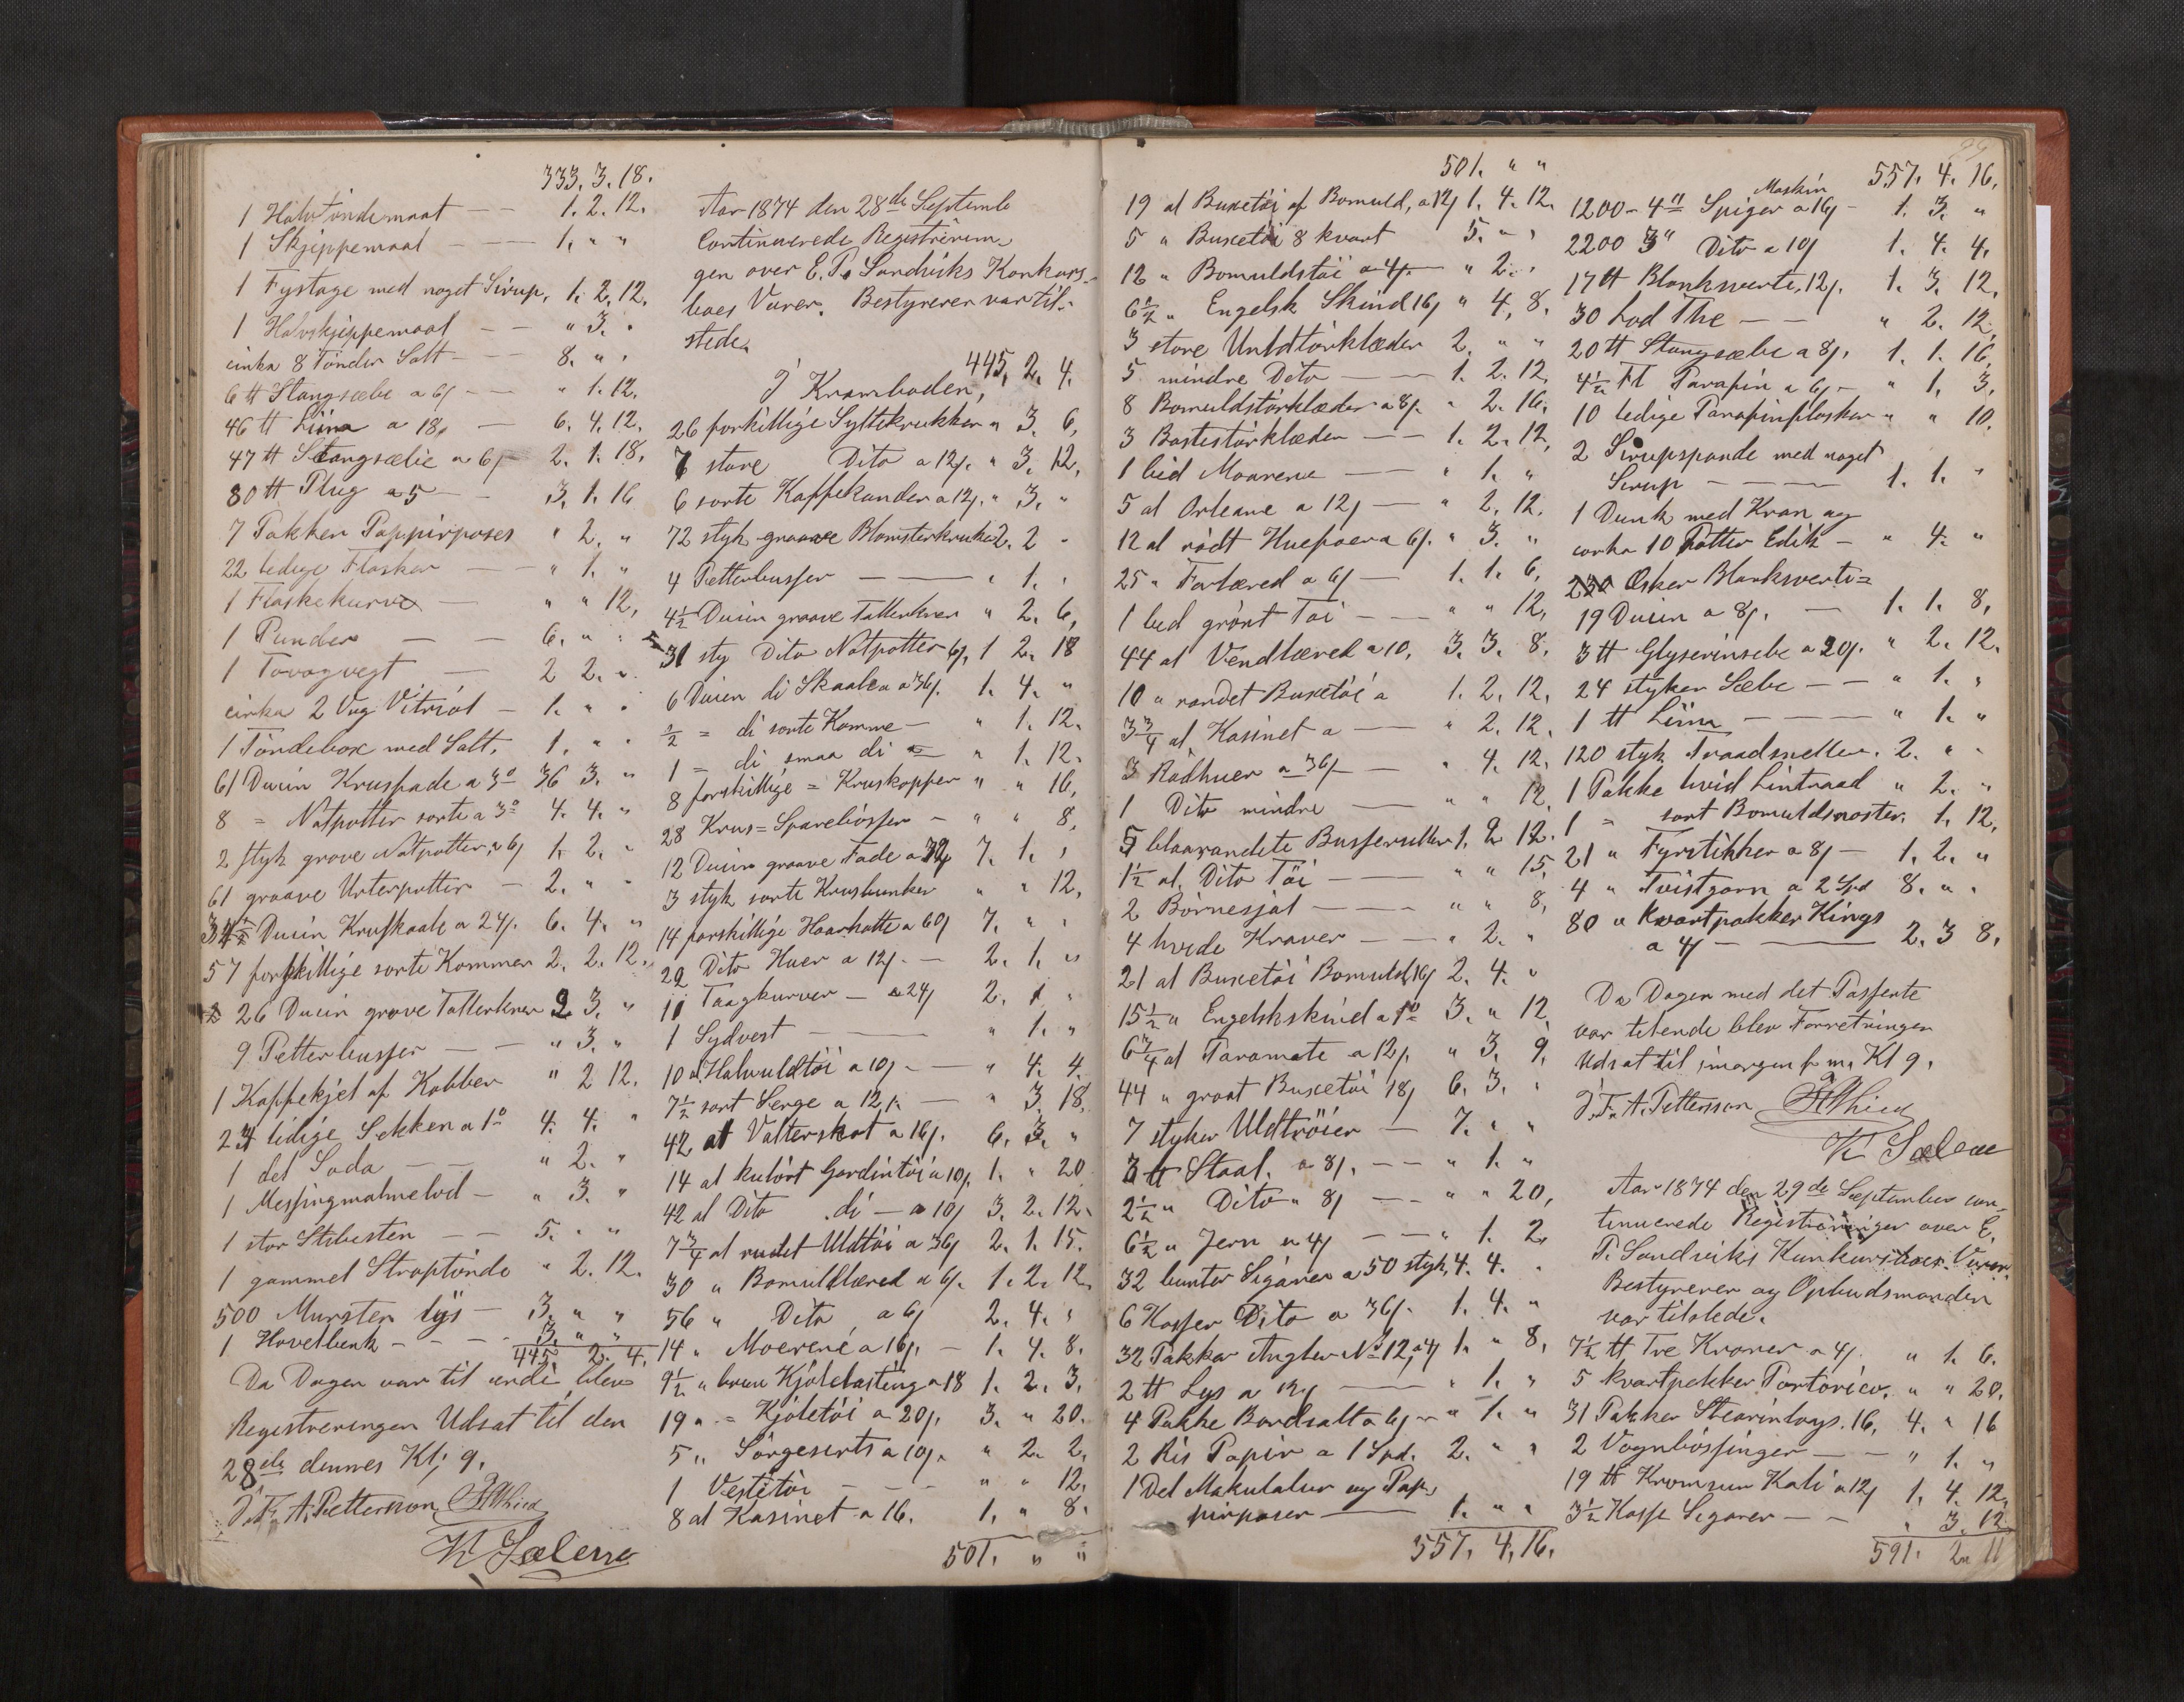 333. 3. 18.
1 Halvtöndemaat — — 1. 2. 12.
1 Skjeppemaal — — 1. " "
1 Fystage med noget Sirup, 1. 2. 12.
1 Halvskjeppemaal — — " 3. "
cirka 8 Tönder Salt — — 8. " "
6 tt Stangsæbe a 6/ — — " 1. 12.
46 tt Liim a 18/ — 6. 4. 12.
47 tt Stangsæbe a 6/ — 2. 1. 18.
80 tt Plug a 5 — — 3. 1. 16
7 Pakker Pappirposer " 2. "
22 ledige Flasker — — " 1. "
1 Flaskekurv — " " 12,
1 Punder — — 6. " "
1 Tovogvegt — 2 2. "
cirka 2 Vog Vitriol — 1. " "
1 Töndebox med Salt, 1. " "
61 Dusin Krusfade a 3° 36 3. "
8 = Natpotter sorte a 3° 4. 4. "
2 styk grove Natpotter, a 6/ 1. 2. "
61 graave Urterpotter — 2. " "
34 1/2 Dusin Kruskaale a 24/. 6. 4. "
57 forskillige sorte Kommer 2. 2. 12.
26 Dusin grove Tallerkner 9. 3. "
9 Petterbusser — — " 3. "
1 Kaffekjel af Kobber " 2 12.
24 ledige Sekken a 1° 4. 4. "
1 del Soda — — " 2. "
1 Messingmalmelod — " 3. "
1 stor Slibesten — — 5. " "
1 gammel Straptönde " 2. 12.
500 Mursten lys — 3. " "
1 Hovelbenk — — — 3. " "
445. 2. 4.
Da Dagen var til ende blev
Registreringen Udsat til den
28de dennes Kl; 9.
J. F. A. Petterson
K Sælen
Aar 1874 den 28de Septemb
continuerede Registrerin-
gen over E. P. Sandviks Konkurs-
boes Varer. Bestyreren var til-
stede.
445, 2. 4.
I Kramboden,
26 forkillige Syltekrukker " 3. 6,
7 store Dito a 12/. " 3. 12,
6 sorte Kaffekander a 12/. " 3. "
72 styk graave Blomsterkrukker 2. 2 "
4 Petterbusser — — " 1. "
4 1/2 Dusin graave Tallerkner " 2. 6,
31 sty Dito Natpotter 6/, 1 2. 18
6 Dusin di Skaaler a 36/. 1. 4. "
1/2 = di sorte Komme — " 1. 12.
1 = di smaa di — " 1. 12.
8 forskillige = Kruskopper " " 16,
28 Krus = Sparebösser — " " 8,
12 Dusin graave Fade a 72/ 7. 1. "
3 styk sorte Krusbunker " " 12,
14 forskillige Haarhatte a 60/ 7. " "
22 Dito Huer a 12/. — 2. 1. "
11 Taagkurver — a 24/ 2. 1 "
1 Sydvest — — " 1. "
10 al Halvuldtöi a 10/ — — " 4. 4.
7 1/2 sort Serge a 12/. — " 3. 18.
42 al Vatterskot a 16/. 6. 3. "
14 al kulört Gardintöi a 10/. 1. " 20
42 al Dito di — a 10/ 3. 2. 12.
7 3/4 al rudet Uldtöi a 36/ 2. 1. 15.
30 " Bomuldlæred a 6/. 1. 2. 12.
56 " Dito a 6/ 2. 4. "
14 " Moerene a 16/. — 1. 4. 8.
9 1/2 " brun Kjolelasting a 18 1. 2. 3.
19 " = Kjoletöi a 20/. 3. " 20.
5 " Sörgesirts a 10/. " 2. 2.
1 Vestetöi — — — " " 12,
8 al Kasinet a 16. 1, " 8.
501. " "
501. " "
19 al Buxetöi af Bomuld, a 12/ 1. 4. 12.
5 " Buxetöi 8 kvart 5. " "
12 " Bomuldstöi a 4/. — " 2. "
6 1/2 " Engelsk Skind 16/ " 4, 8.
3 store Uldtörklæder 2. " "
5 mindre Deto — — 1. 2. 12,
8 Bomuldstörklæder a 8/. " 2. 16,
3 Bastestörklæder — — 1. 2. 12,
1 bid Moarene — — " 1. "
5 al Orleane a 12/ — " 2, 12.
12 al rödt Huefoer a 6/. " 3. "
25 " Forlæred a 6/ — 1. 1. 6,
1 bed grönt Töi — — " " 12,
44 al Vendlæred a 10, 3. 3. 8.
10 " randet Buxetöi a 1. 2. 12,
3 3/4 al Kasinet a — — " 2. 12.
3 Rödhuer a 36/ — " 4. 12.
1 Dito mindre — " " 12,
5 blaarandete Busseruller 1. 2 12.
1 1/2 al. Dito Töi — — " " 15.
2 Börnesjal — — " " 8,
4 hvide Kraver — — " 2. "
21 al Buxetöi Bomuld, 16/ 2. 4. "
15 1/2 " Engelskskind a 1° 3. " 12
6 3/4 al Paramate a 12/. " 3. 9.
44 " graat Buxetöi 18/ 6. 3. "
7 styker Uldtröier — 7. " "
3 tt Staal. a 8/. — — " 1. "
2 1/2 " Dito " 8/ — — " " 20,
6 1/2 " Jern a 4/ — — " 1. 2.
32 bunter Sigarer a 50 styk, 4. 4. "
6 Kasser Dito a 36/. 1. 4. "
32 Pakker Angler No 12, a 4/ 1. " 8,
2 tt Lys a 12/ — — " 1. "
4 Pakke Bordsalt a 6/ — " 1. "
2 Ris Papir a 1 Spd. 2. " "
1 Del Makulatur og Pap-
pirposer — — 1. " "
557. 4, 16.
557. 4. 16.
Maskin
1200 — 4" Spiger a 16/ — 1. 3. "
2200 3" Dito a 10/ 1. 4. 4.
17 tt Blanksverte, 12/. 1. 3. 12,
30 Lod The — — " 2. 12,
20 tt Stangsæbe a 8/. 1. 1. 16,
4 1/2 Fl Parafin a 6/ — " 1, 3.
10 ledige Parafinflasker " " 10.
2 Sirupspande med noget
Sirup — — — 1. 1. "
1 Dunk med Kran og
cirka 10 Potter Edik — " 4. "
Æsker Blanksverte =
19 Dusin a 8/. — 1. 1. 8,
3 tt Glyserinsebe a 20/. " 2. 12.
24 styker Sæbe — — " 1. "
1 tt Liim — — — " 1. "
120 styk Traadsneller. 2. " "
1 Pakke hvid Lintraad " 2. "
1 = sort Bomuldsnoster. 1. 12,
21 " Fyrstikker a 8/ — 1. 2. "
4 " Tvistgarn a 2 Spd 8. " "
80 " Kvartpakker Kings
a 4/ — — 2. 3 8.
Da Dagen med det Passerte
var tilende blev Forretningen
Udsat til imorgen f. m. Kl 9.
J. F. A. Petterson
K Sælen
Aar 1874 den 29de Septembr con-
tinuerede Registreringer over E.
P. Sandviks Konkursboes Varer.
Bestyrerer og Opbudsmanden
var tilstede.
7 1/2 tt Tre Kroner a 4/. " 1. 6.
5 kvartpakker Portorico. " " 20.
31 Pakker Stearinlays. 16, 4. " 16
2 Vognbössinger — — " 1. "
19 tt Kromsur Kali a 12/ 1. 4. 12,
3 1/2 Kasse Sigarer — — " 3. 12
591. 2. 11